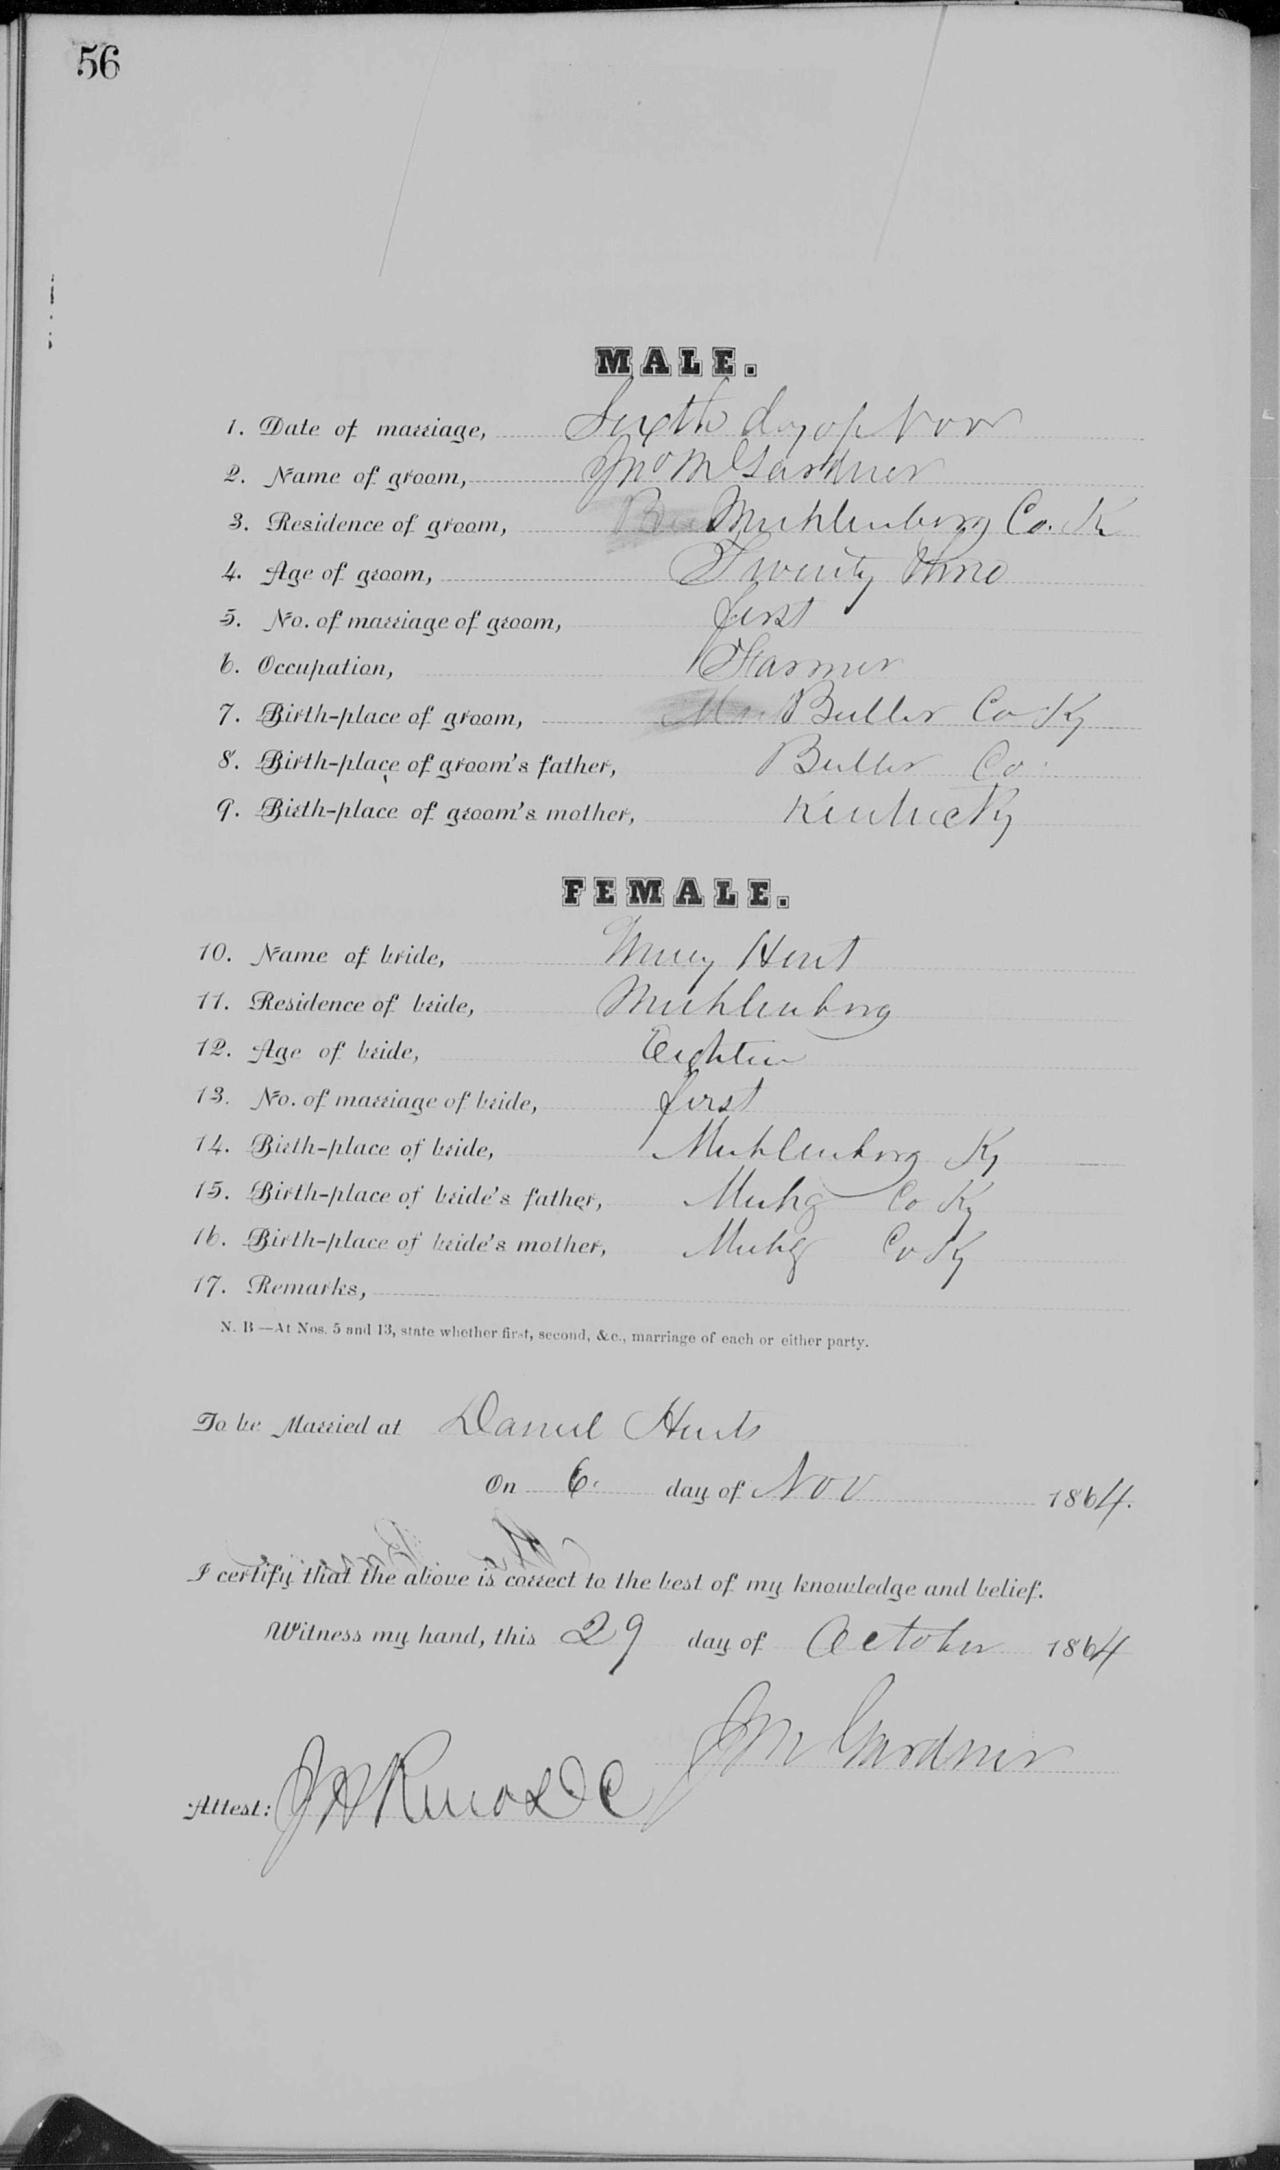 56
MALE.
1. Date of marriage, Sixth day of Novr
2. Name of groom, Jno M Gardner
3. Residence of groom, Muhlenborg Co. K
4. Age of groom, Twenty
5. No. of marriage of groom, first
6. Occupation, Farmer
7. Birth-place of groom, Butler Co Ky
8. Birth-place of groom's father, Butler Co
9. Birth-place of groom's mother, Kentucky
FEMALE.
10. Name of bride, Hunt
11. Residence of bride, Muhlenborg
12. Age of bride, Eighteen
13. No. of marriage of bride, first
14. Birth-place of bride, Muhlenborg Ky
15. Birth-place of bride's father, Muhg Co Ky
16. Birth-place of bride's mother, Muhg Co Ky
17. Remarks,
N. B —At Nos. 5 and 13, state whether first, second, &c., marriage of each or either party.
To be Married at Daniel Hunts
On 6. day of Nov 1864.
I certify that the above is correct to the best of my knowledge and belief.
Witness my hand, this 29 day of October 1864
J M Gardner
Attest: J H Reno D C